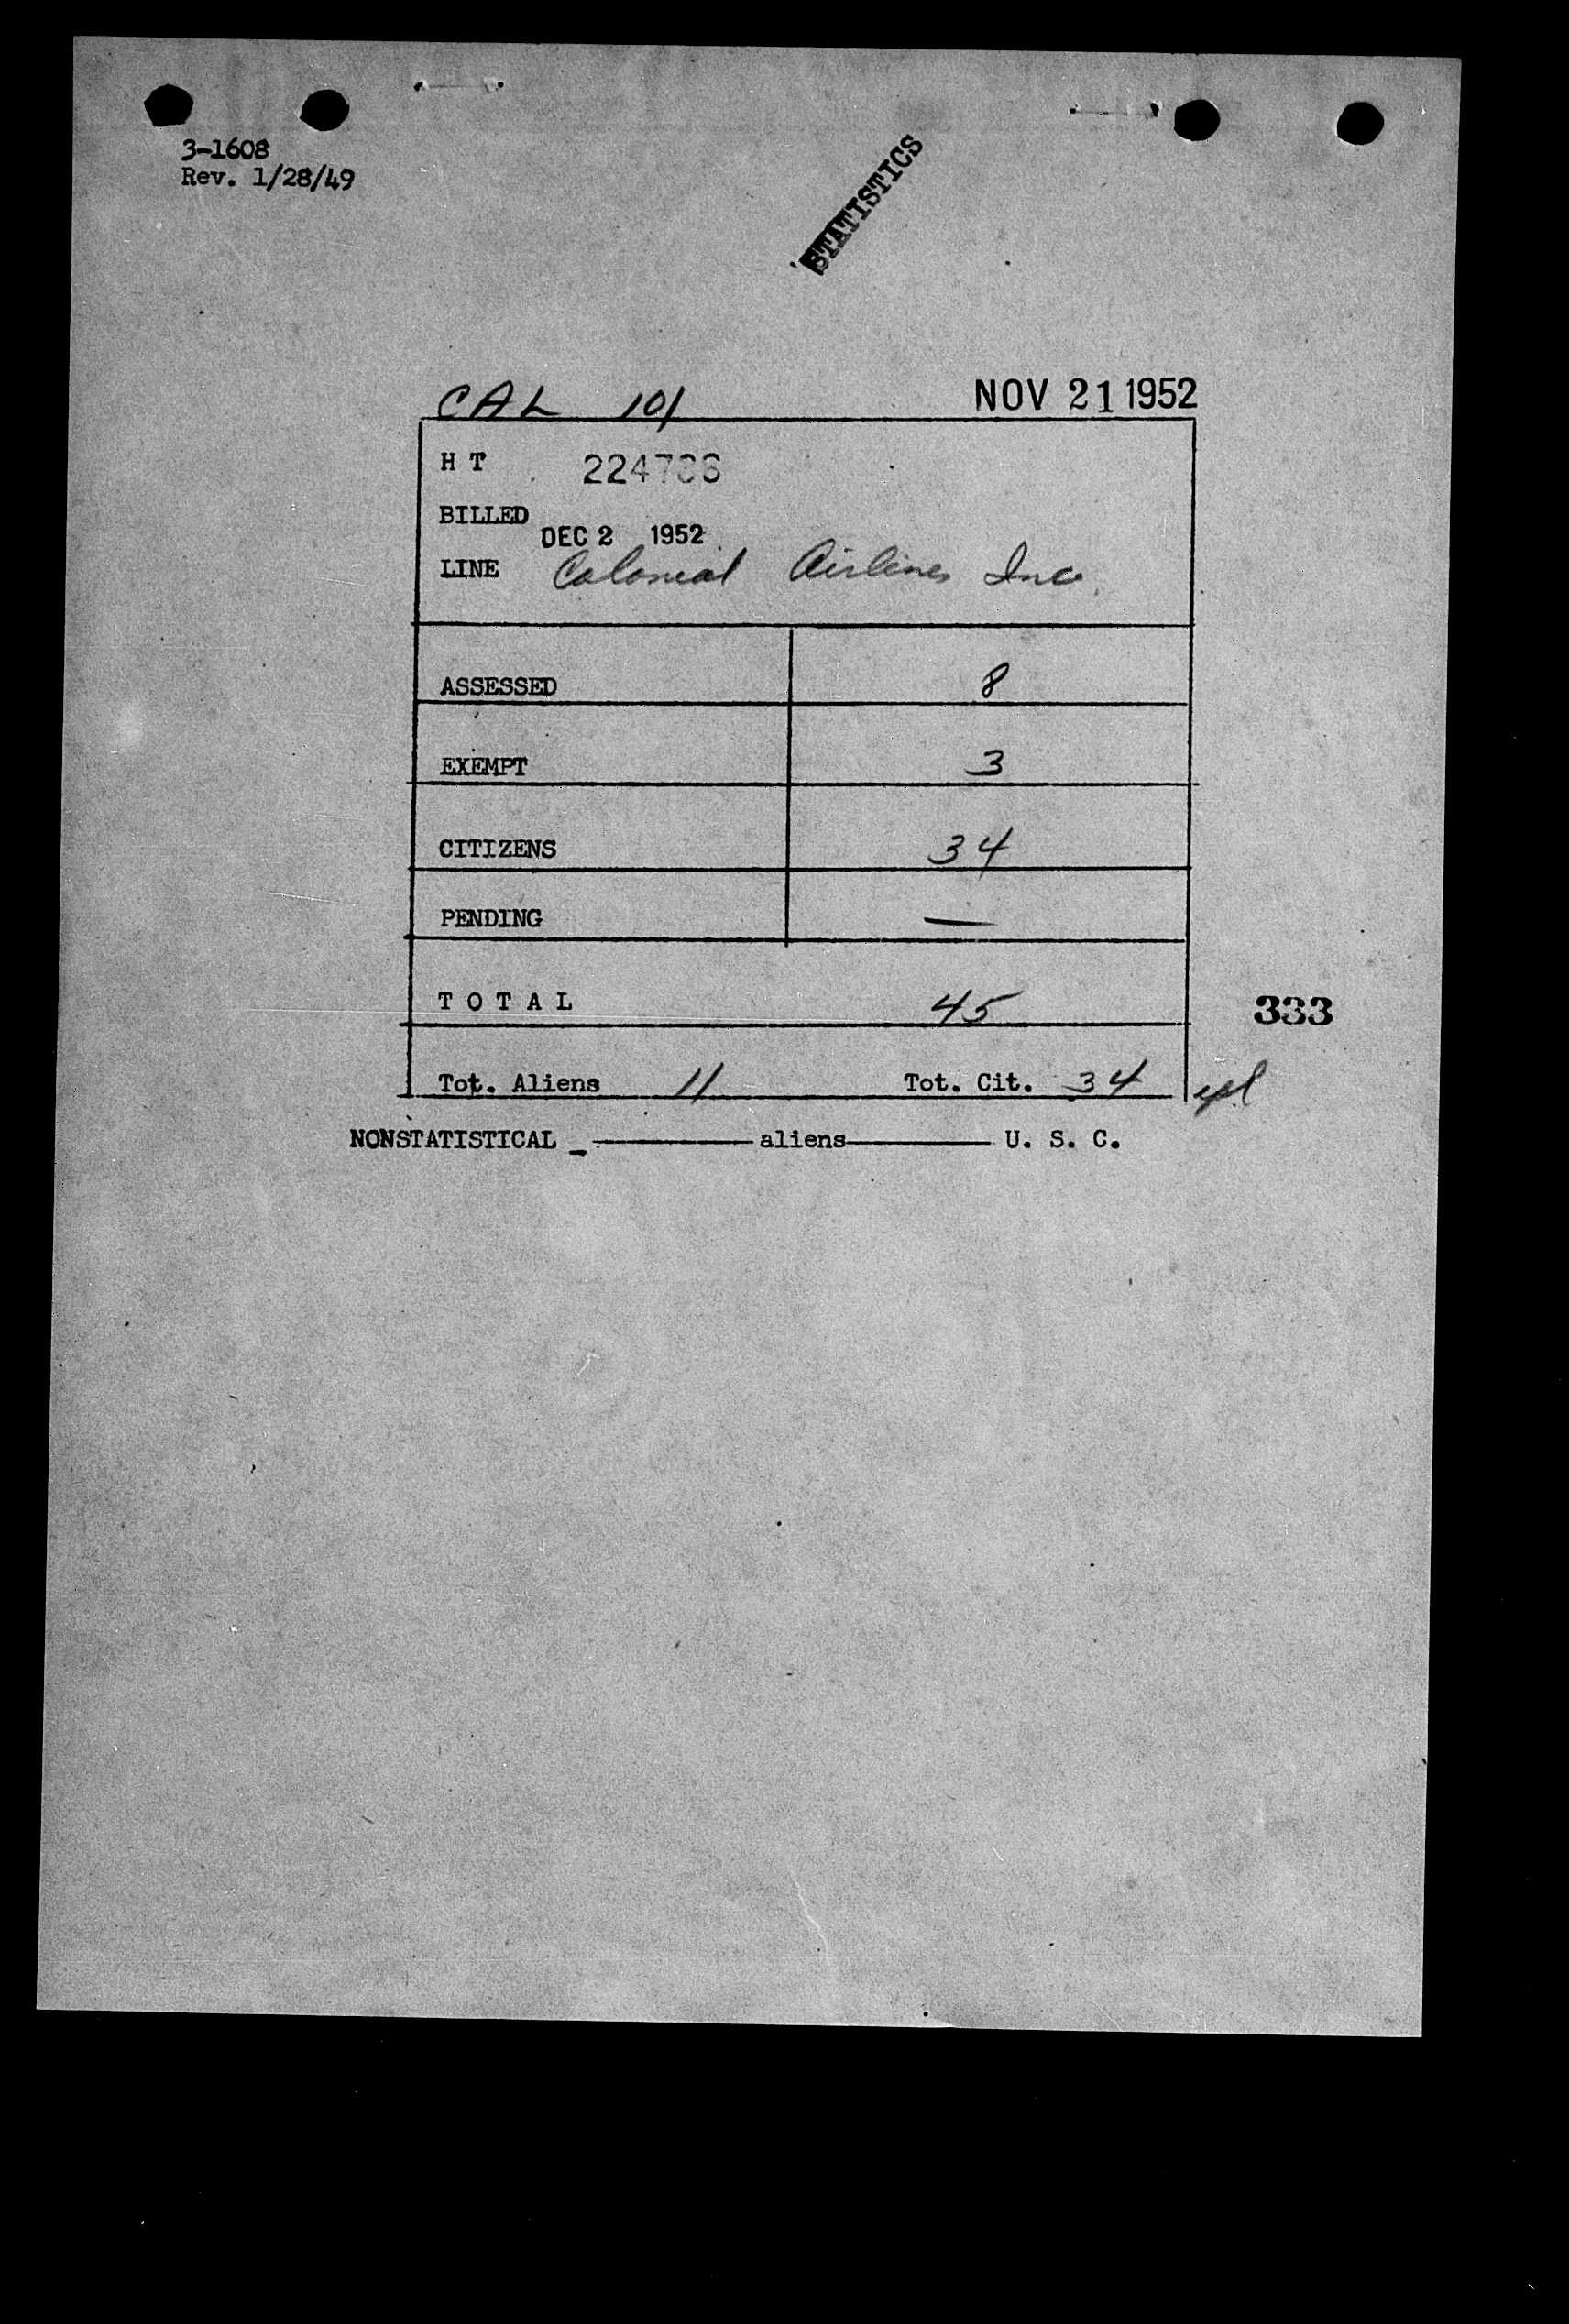 3-1608
Rev. 1/28/49
STATISTICS
CAL 101 NOV 21 1952
H T
BILLED
DEC 2 1952
LINE Colonial Airlines Inc.
ASSESSED 8
EXEMPT 3
CITIZENS 34
PENDING —
T O T A L 45
333
Tot. Aliens 11 Tot. Cit. 34
NONSTATISTICAL _ ———— aliens ———— U. S. C.